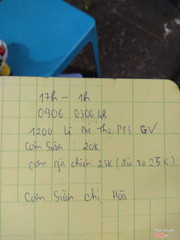 17h - 1h
0906 030648
1200 Lê Đức Thọ, P13 GV
Cơm Sườn 20K
cơm gà chiên 23K (đùi to 25K)
Cơm Sườn chị Hoà